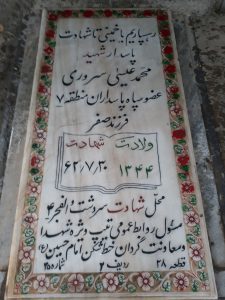 رهسپاریم با خمینی تا شهادت
پاسدار شهید
محمد عینی سروری
عضو سپاه پاسداران منطقه ۷
فرزند صفر
ولادت شهادت
۱۳۴۴ ۶۲/۷/۳۰
محل شهادت سردشت والفجر ۴
مسئول روابط عمومی تیپ ویژه شهدا
و معاونت گردان خط شکن امام حسین (ع)
قطعه ۲۸ ردیف ۲ شماره ۲۵